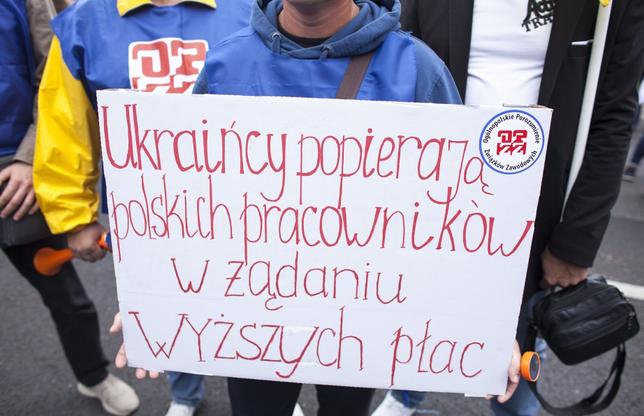 Ukraińcy popierają
polskich pracowników
w żądaniu
wyższych płac
Ogólnopolskie Porozumienie
Związków Zawodowych